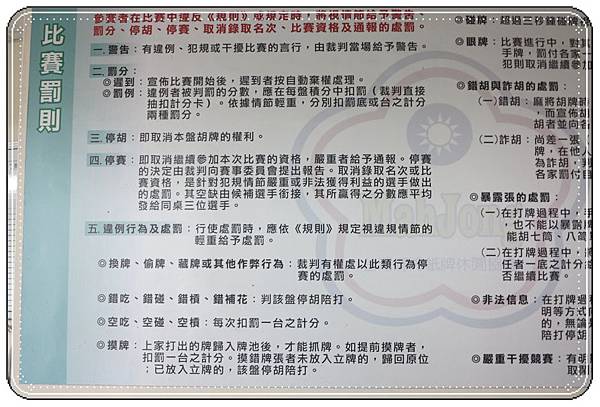 比賽罰則
參賽者在比賽中違反《規則》或規定時，將視情節給予警告
罰分、停胡、停賽、取消錄取名次、比賽資格及通報的處罰
一.警告：有違例、犯規或干擾比賽的言行，由裁判當場給予警告。
二.罰分：
◎遲到：宣佈比賽開始後，遲到者按自動棄權處理。
◎罰例：違例者被判罰的分數，應在每盤積分中扣罰（裁判直接
抽扣計分卡）。依據情節輕重，分別扣罰底或台之計分
兩種罰分。
三.停胡：即取消本盤胡牌的權利。
四.停賽：即取消繼續參加本次比賽的資格，嚴重者給予通報。停賽
的決定由裁判向賽事委員會提出報告。取消錄取名次或比
賽資格，是針對犯規情節嚴重或非法獲得利益的選手做出
的處罰。其空缺由候補選手銜接，其所贏得之分數應平均
發給同桌三位選手。
五.違例行為及處罰：行使處罰時，應依《規則》規定視違規情節的
輕重給予處罰。
◎換牌、偷牌、藏牌或其他作弊行為：裁判有權處以此類行為停
賽的處罰。
◎錯吃、錯碰、錯槓、錯補花：判該盤停胡陪打。
◎空吃、空碰、空槓：每次扣罰一台之計分。
◎摸牌：上家打出的牌歸入牌池後，才能抓牌。如提前摸牌者，
扣罰一台之計分。摸錯牌張者未放入立牌的，歸回原位
；已放入立牌的，該盤停胡陪打。
◎碰牌：超過三秒鐘碰牌
◎眼牌：比賽進行中，對其
手牌，罰付各家一
犯則取消繼續參加
◎錯胡與詐胡的處罰：
(一)錯胡：麻將胡牌
，而宣佈胡
胡者並向各
(二)詐胡：尚差一張
牌，在他人
為詐胡，判
各家罰付自
◎暴露張的處罰：
(一)在打牌過程中，手
，也不能以暴露牌
能胡七筒、八萬
(二)在打牌過程中，將
任者一底之計分
否繼續比賽。
◎非法信息：在打牌過
明等方式向
的，無論是
陪打停胡
◎嚴重干擾競賽：有明
取消
MahJong
紙牌休閒